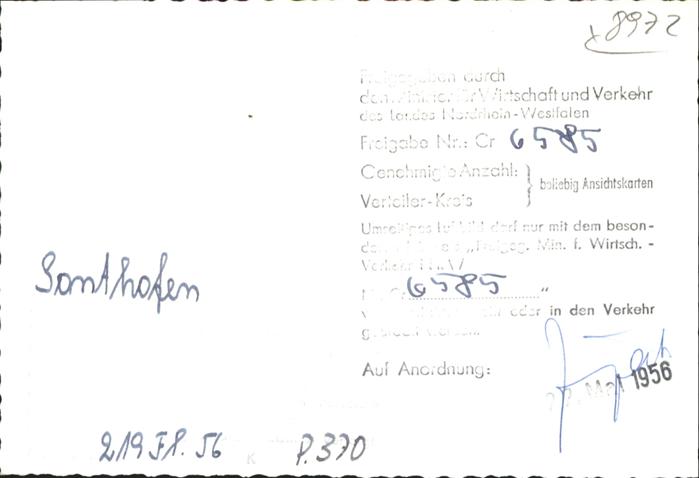 8972
Freigegeben durch
den Minister für Wirtschaft und Verkehr
des Landes Nordrhein-Westfalen
Freigabe Nr.: Cr 6585
Genehmigte Anzahl: } beliebig Ansichtskarten
Verteiler-Kreis
Umseitiges Luftbild darf nur mit dem beson-
„Freigeg. Min. f. Wirtsch. -
Verkehr
6585 "
oder in den Verkehr
Auf Anordnung:
Mai 1956
Sonthofen
219 FP. 56 P. 370